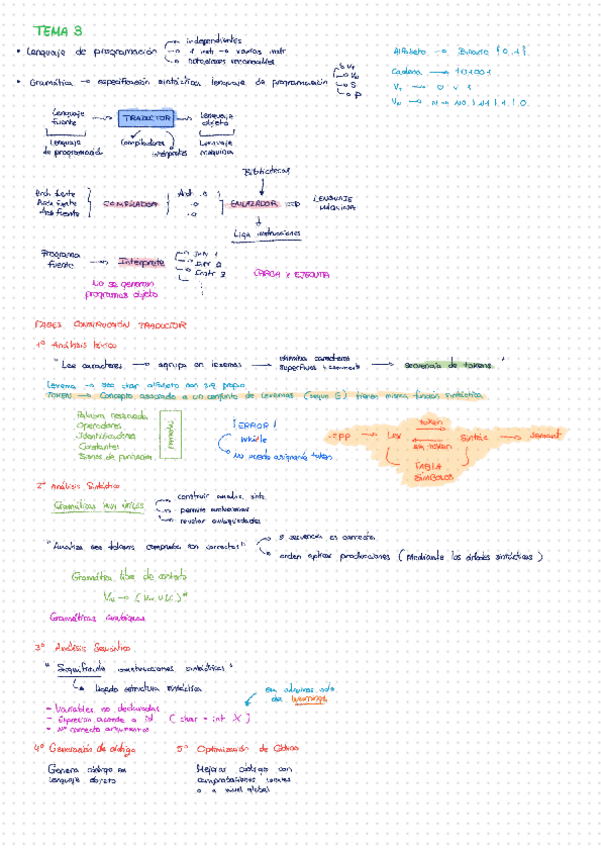 TEMA 3
• Lenguaje de programación → independientes
→ 1 instr → varias instr
→ notaciones reconocibles
Alfabeto → Binario {0,1}
Cadena → 101001
• Gramática → especificación sintáctica lenguaje de programación
VT
VN
S
P
VT → 0 y 1
Lenguaje fuente → TRADUCTOR → Lenguaje objeto
Lenguaje de programación
Compiladores
intérpretes
Lenguaje máquina
Bibliotecas
Arch fuente
Arch fuente
Arch fuente
COMPILADOR
Arch .o
.o
.o
ENLAZADOR
LENGUAJE MÁQUINA
Liga instrucciones
Programa fuente → Interprete
Intr 1
Intr 2
Instr 3
CARGA Y EJECUTA
No se generan programas objeto
FASES CONSTRUCCIÓN TRADUCTOR
1º Análisis léxico
"Lee caracteres → agrupa en lexemas → elimina caracteres superfluos → secuencia de tokens"
Lexema → sec char alfabeto con sig propio
TOKENS → Concepto asociado a un conjunto de lexemas (según G) tienen misma función sintáctica
Palabra reservada
Operadores
Identificadores
Constantes
Signos de puntuación
¡ERROR!
No puedo asignarle token
.cpp → Lex
token
sig token
Sintác → semánt
TABLA SÍMBOLOS
2º Análisis Sintáctico
Gramáticas muy útiles
construir analiz. sint.
revelar ambigüedades
"Analiza sec tokens comprueba son correctos"
si secuencia es correcta
orden aplicar producciones (Mediante los árboles sintácticos)
Gramática libre de contexto
Gramáticas ambiguas
3º Análisis Semántico
"Significado construcciones sintácticas"
→ ligado estructura sintáctica
- Variables no declaradas
- Expresion acorde a id (char = int X)
- Nº correcto argumentos
en algunos solo da warnings
4º Generación de código
Genera código en lenguaje objeto
5º Optimización de Código
Mejorar código con comprobaciones locales o a nivel global